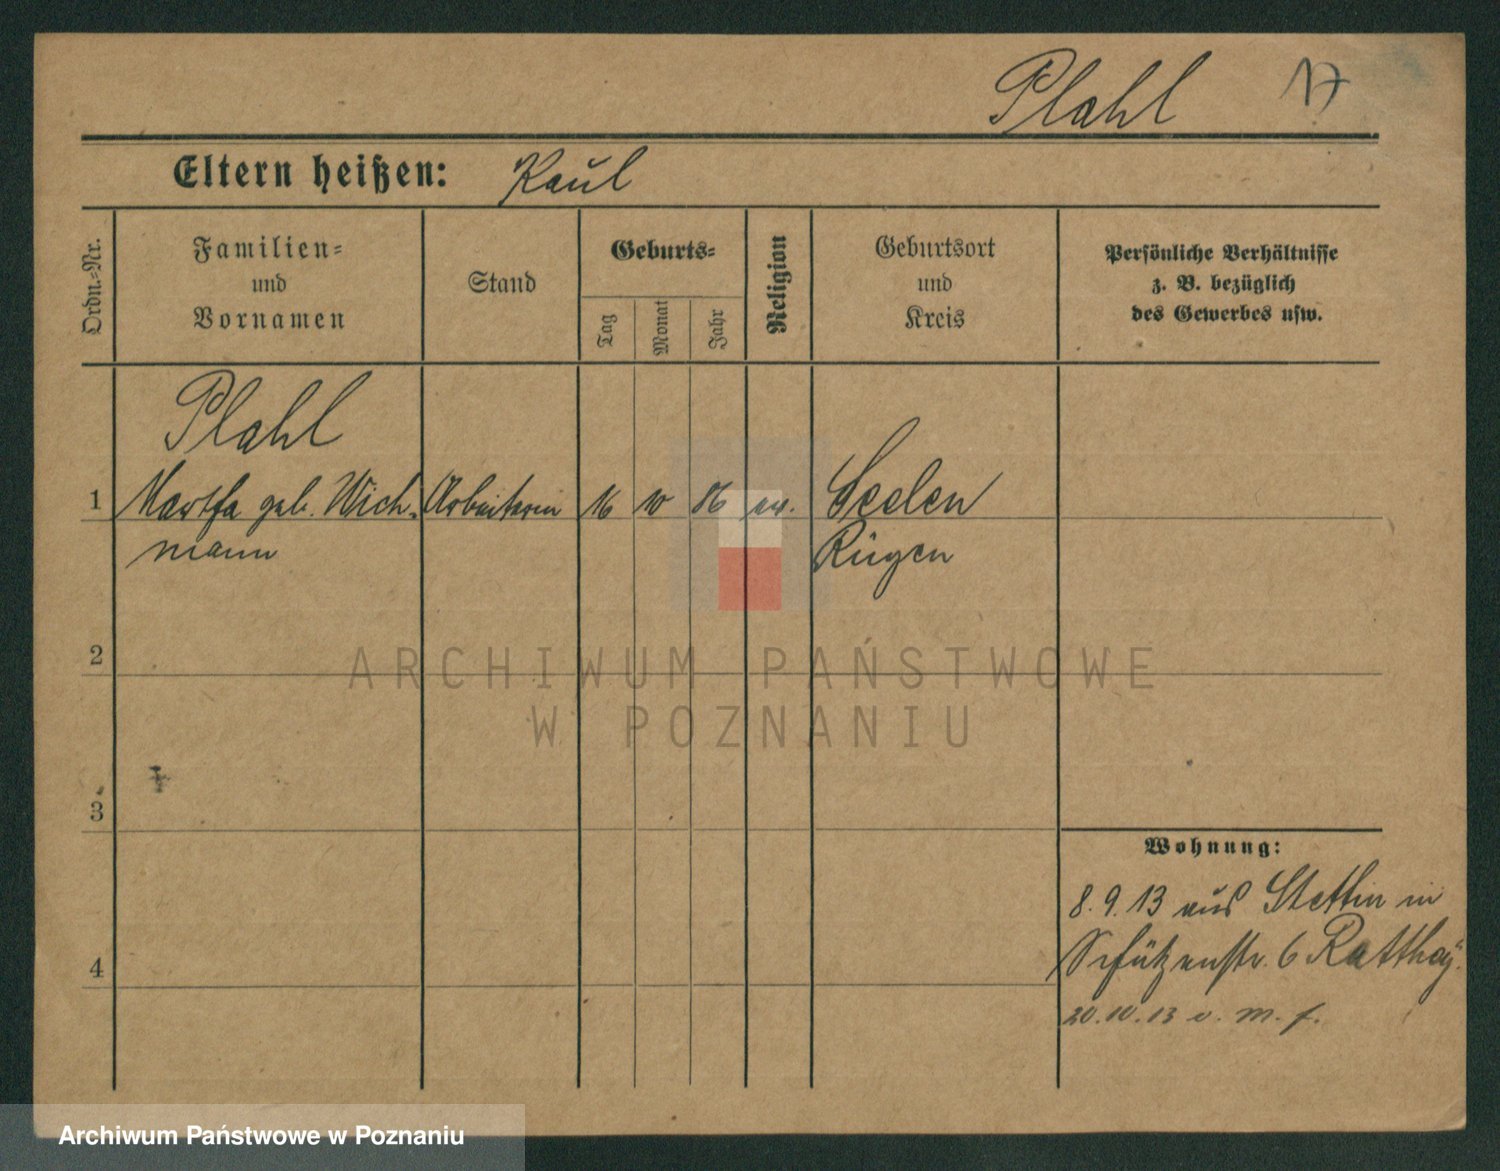 Plahl 17
Eltern heißen: Paul
Ordn.-Nr.
Familien-
und
Vornamen
Stand
Geburts-
Tag
Monat
Jahr
Religion
Geburtsort
und
Kreis
Persönliche Verhältnisse
z. B. bezüglich
des Gewerbes usw.
Plahl
1 Martha geb. Wich- Arbeiterin 16 10 86 ev. Seelen
mann Rügen
2
ARCHIWUM PAŃSTWOWE
W POZNANIU
3
Wohnung:
8.9.13 aus Stettin in
Schützenstr. 6
4
20.10.13 v. m. f.
Archiwum Państwowe w Poznaniu